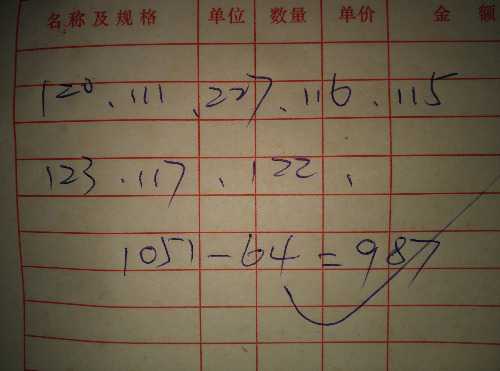 名称及规格 单位 数量 单价 金额
120、111、227、116、115
123、117、122、
1051-64=987